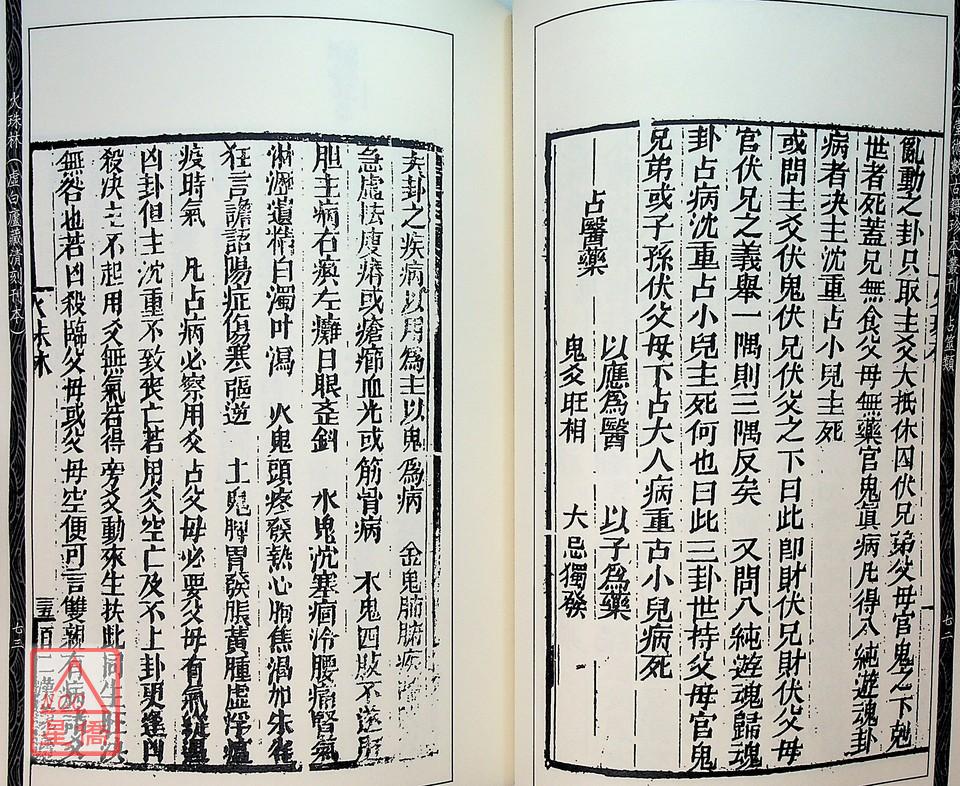 亂動之卦只取主爻大抵休囚伏兄弟父母官鬼之下尅
世者死蓋兄無食父母無藥官鬼眞病凡得八純遊魂卦
病者决主沈重占小兒主死
或問主爻伏鬼伏兄伏父之下曰此卽財伏兄財伏父毋
官伏兄之義舉一隅則三隅反矣 又問八純遊魂歸魂
卦占病沈重占小兒主死何也曰此三卦世持父毋官鬼
兄弟或子孫伏父毋下占大人病重古小兒病死
占醫藥 以應爲醫 以子爲藥
鬼爻旺相 大忌獨發
七二
夫卦之疾病以用爲主以鬼爲病 金鬼肺腑疾
急虛怯廋瘠或瘡癤血光或筋骨病 木鬼四肢不遂肝
胆主病右瘓左癱目眼歪斜 水鬼沈塞痼冷腰痛腎氣
淋瀝遺精白濁吐瀉 火鬼頭疼發熱心胸焦渴加朱雀
狂言譫語陽症傷寒 土鬼脾胃發脹黃腫虛浮瘟
疫時氣 凡占病必察用爻占父母必要父母有氣
凶卦但主沈重不致丧亡若用爻空亡及不上卦更逢凶
殺决主不起用爻無氣若得旁爻動來生扶此
無咎也若凶殺臨父母或父母空便可言雙親有病
火珠林
火珠林(虛白廬藏清刻刊本)
七三
占筮類
星僑